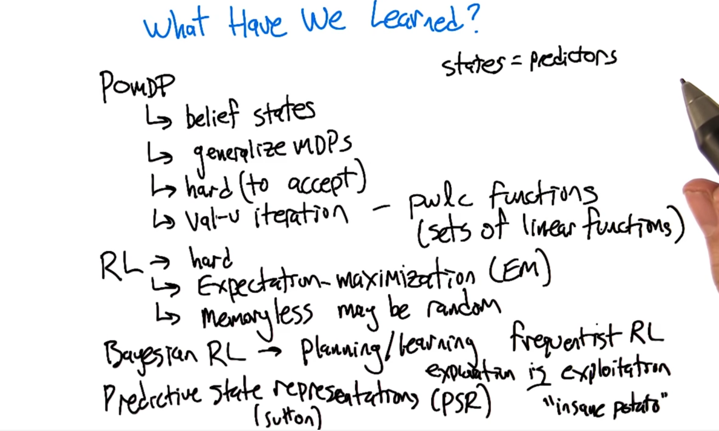 What Have We Learned?
states = predictors
POMDP
↳ belief states
↳ generalize MDPs
↳ hard (to accept)
↳ val-u iteration – pwlc functions
(sets of linear functions)
RL → hard
↳ Expectation-maximization (EM)
↳ memoryless may be random
Bayesian RL → planning/learning
frequentist RL
exploration is exploitation
Predictive state representations (PSR)
"insane potato"
(sutton)